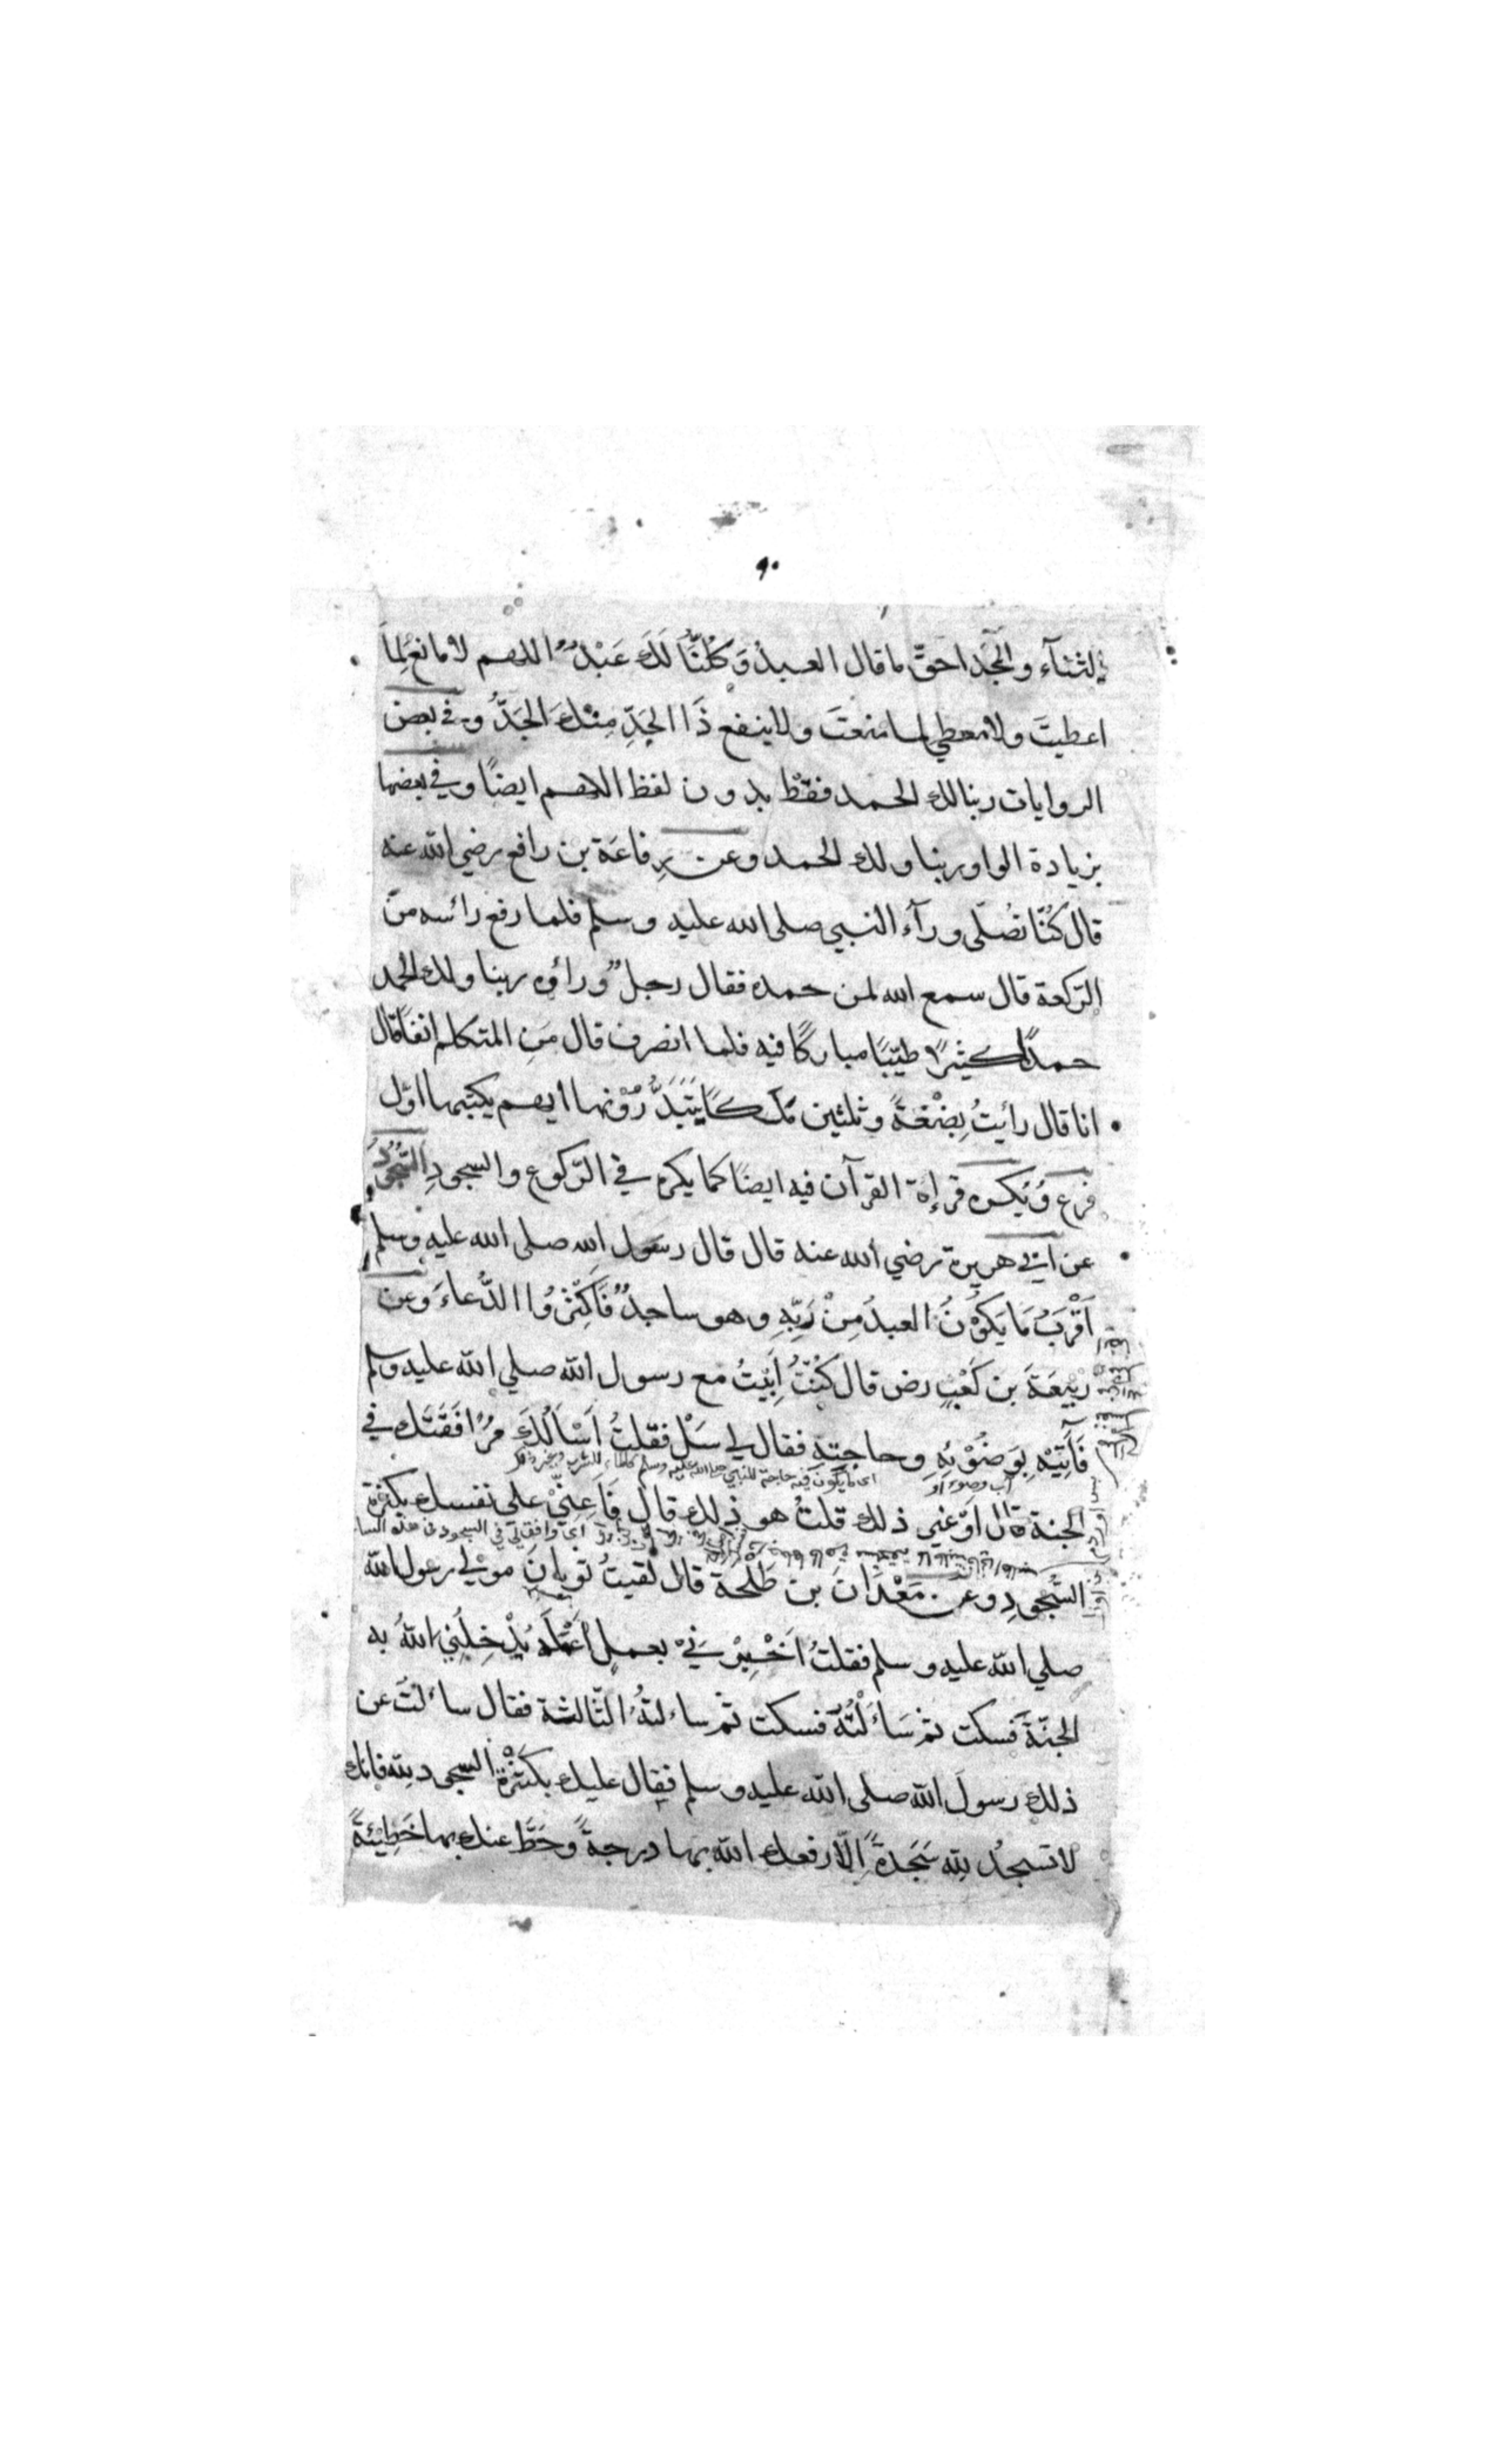 ٩٠
الثنآء والمجد احقّ ما قال العبدُ وَكُلُّنَا لَكَ عَبْدٌ اللهم لا مانعَ لِمَا
اعطيتَ ولا معطي لما منعتَ ولا ينفع ذَا الجَدِّ مِنْكَ الجَدُّ وفي بعض
الروايات ربنا لك الحمد فقط بدون لفظ اللهم ايضًا وفي بعضها
بزيادة الواو ربنا ولك الحمد وعن رِفاعَة بن رافع رضي الله عنه
قال كُنّا نُصلّى ورآء النبي صلى الله عليه وسلم فلما رفع رائسه من
الرّكعة قال سمع الله لمن حمده فقال رجلٌ وراؤه ربنا ولك الحمد
حمدًا كثيرًا طيّبًا مباركًا فيه فلما انصرف قال مَنِ المتكلم انفًا قال
انا قال رأيتُ بِضْعَةً وثلثين مَلَكًا يَبْتَدِرُوْنها ايهم يكتبها اوّل
فرع وَيُكره قراءة القرآن فيه ايضًا كما يكره في الرّكوع والسجودِ السُّجُوْدُ
عن ابي هريرة رضي الله عنه قال قال رسول الله صلى الله عليه وسلم
اَقْرَبُ مَا يَكُوْنُ العبدُ مِنْ رَبِّهِ وهو ساجدٌ فَاَكْثِرُوا الدُّعاءَ وعن
رَبِيْعَةَ بن كَعْبٍ رض قال كُنْتُ اَبِيْتُ مع رسول الله صلي الله عليه وسلم
فَآتِيْهِ بِوَضُوْئِهِ وحاجتهِ فقال لي سَلْ فقلتُ اَسْاَلُكَ مُرَافَقَتَكَ في
آب وضوء او
اى ما يكون فيه حاجة للنبي صلى الله عليه وسلم كالماء للشرب وغير ذلك
الجنة قال اَوْ غير ذلك قلتُ هو ذلك قال فَاَعِنِّيْ على نفسك بكثرة
السُّجودِ وعن مَعْدَانَ بن طَلْحة قال لقيتُ ثوبانِ مولي رسول الله
صلي الله عليه وسلم فقلتُ اَخْبِرْنِيْ بعملٍ اَعْمَلُه يُدْخِلُنِي اللهُ به
الجنّةَ فسكت ثم سَاَلْتُهُ فسكت ثم سالتهُ الثّالثة فقال سالتُ عن
ذلك رسولَ الله صلى الله عليه وسلم فقال عليك بكَثْرَةِ السجود لله فانك
لا تسجدُ لله سَجدةً اِلّا رفعك الله بها درجةً وحَطَّ عنك بها خَطِيْئَةً